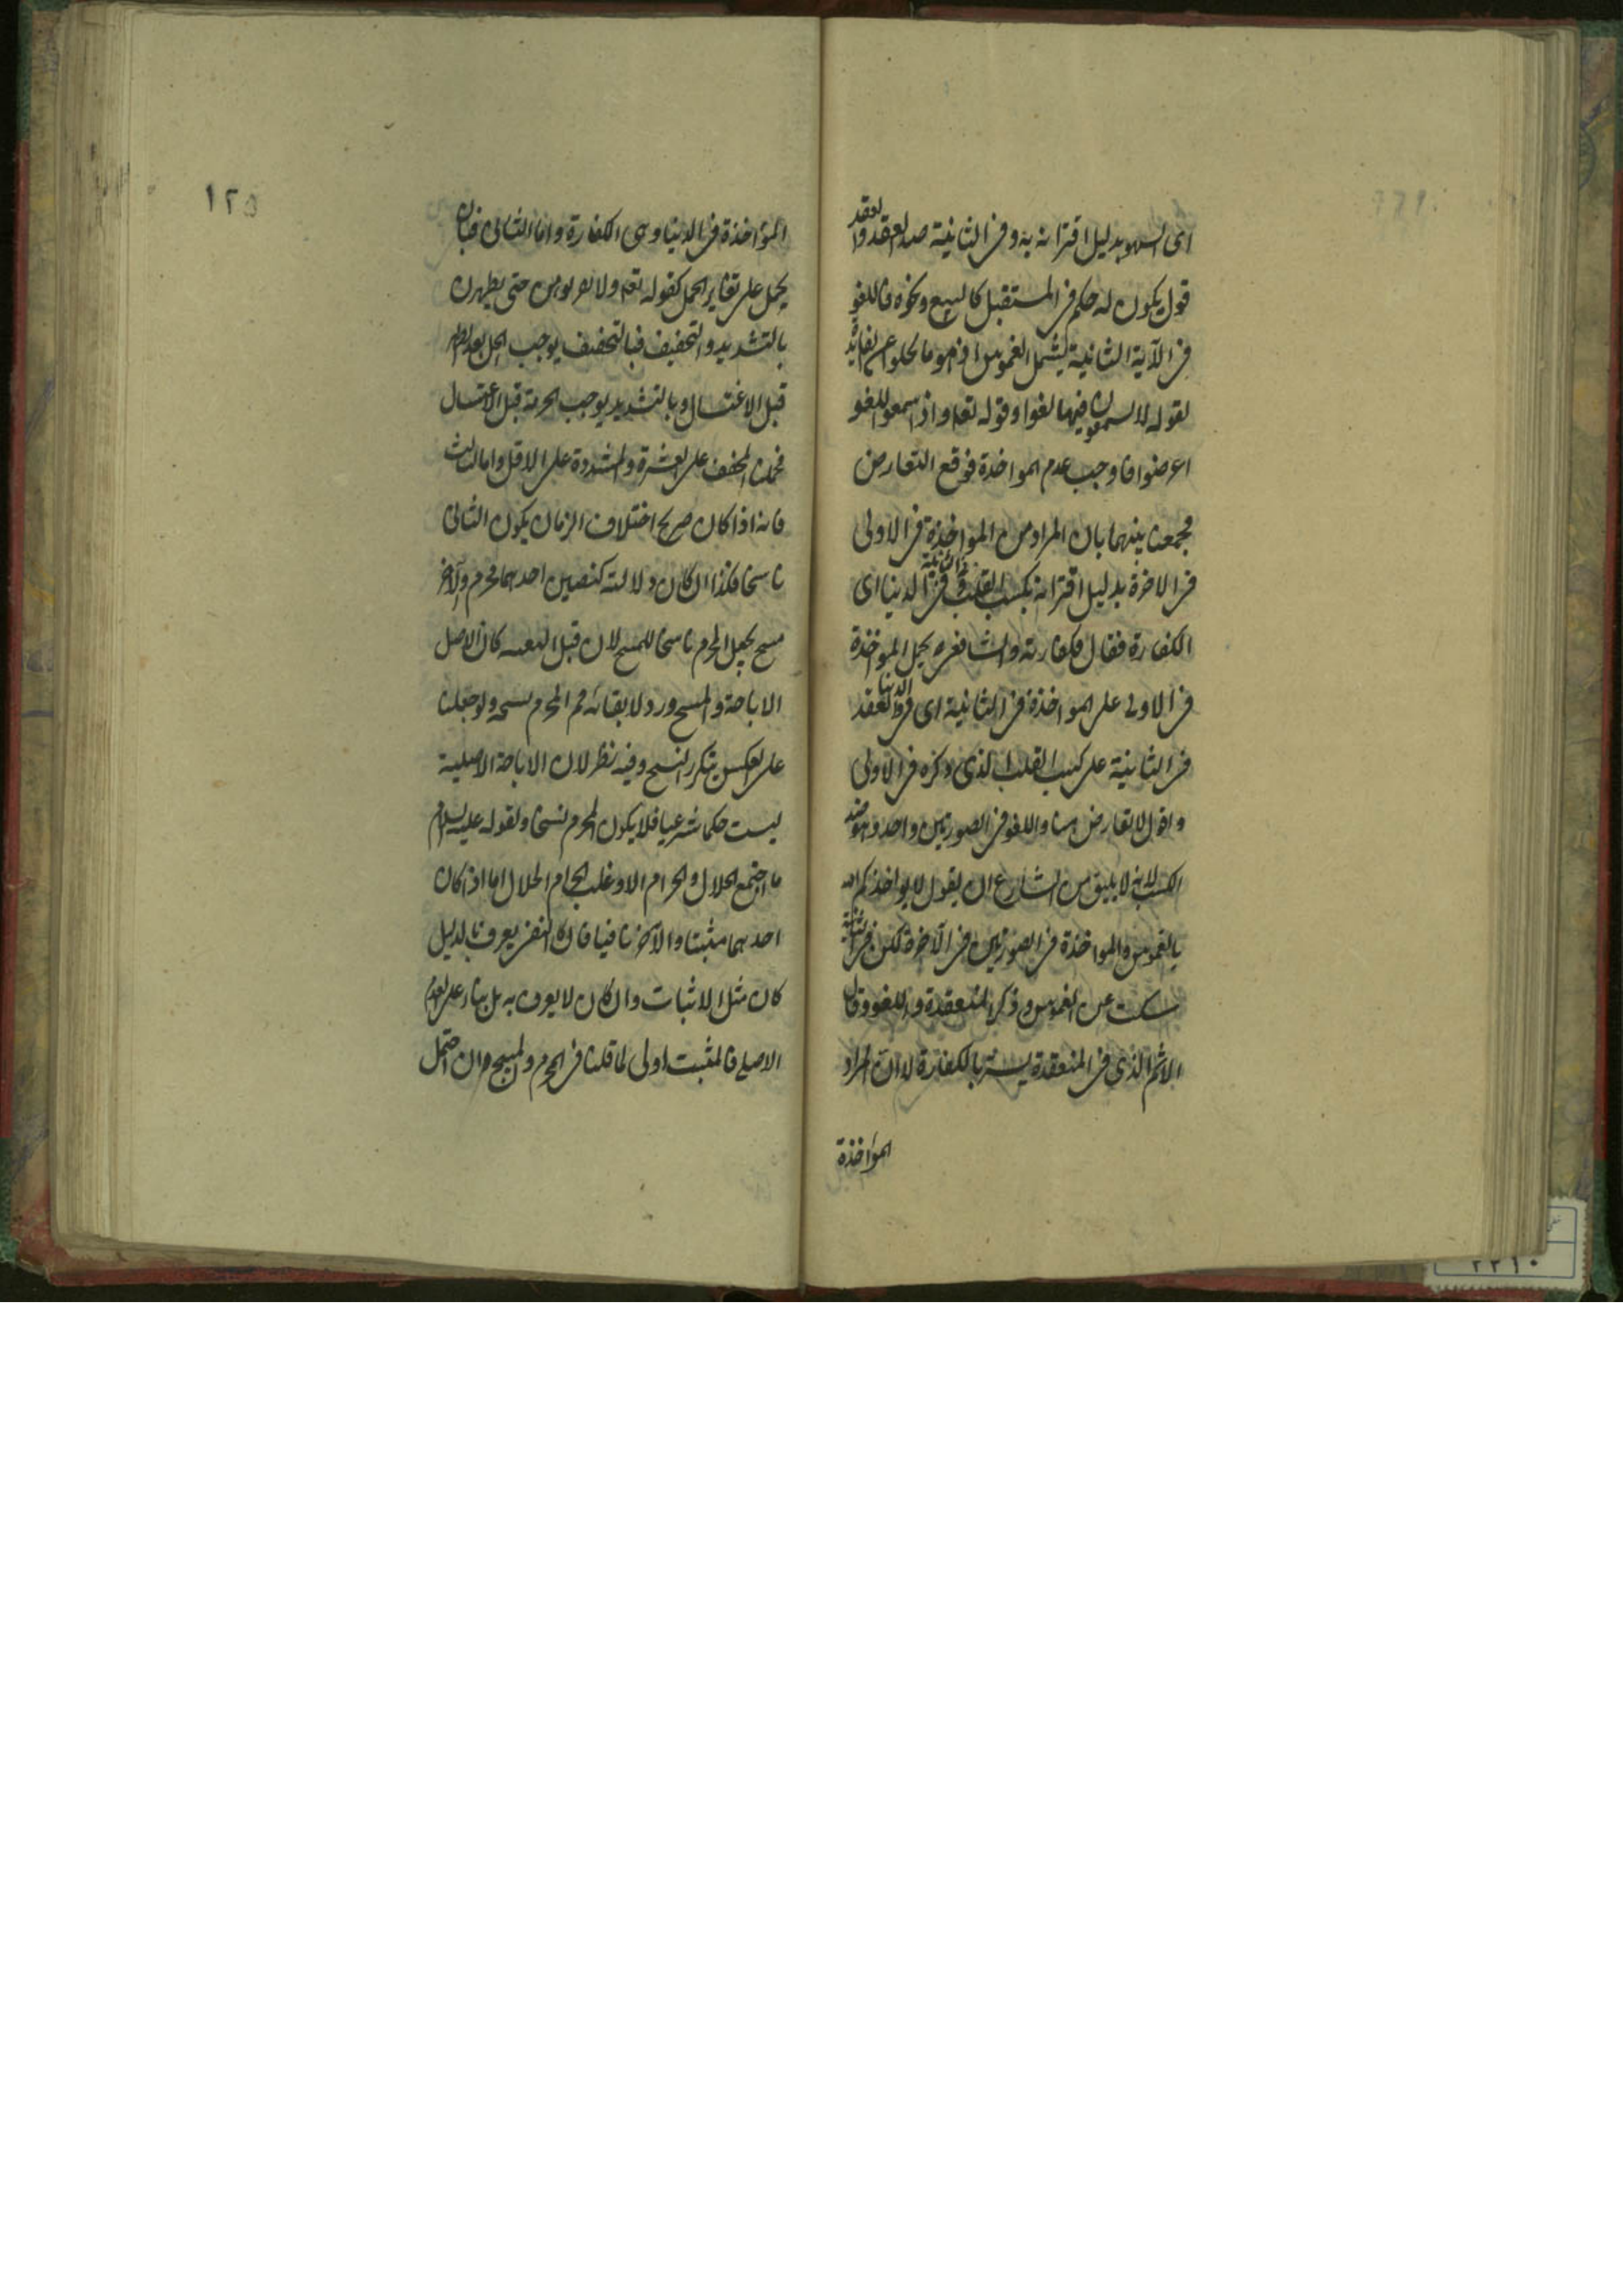 اى السهو بدليل اقترانه به وفى الثانية ضد العقد والعقد
قول يكون له حكم فى المستقبل كالبيع ونحوه فاللغو
فى الآية الثانية يشمل الغموس اذ هو ما يخلو عن الفائدة
لقوله لا يسمعون فيها لغوا وقوله تعه واذا سمعوا اللغو
اعرضوا فاوجب عدم المواخذة فوقع التعارض
فجمعنا بينهما بان المراد من المواخذة فى الاولى
فى الاخرة بدليل اقترانه بكسب القلب وفى الثانية فى الدنيا اى
الكفارة فقال فكفارته والشافعى ره يحمل المواخذة
فى الاولى على المواخذة فى الثانية اى فى الدنيا والعقد
فى الثانية على كسب القلب الذى ذكره فى الاولى
واقول لا تعارض هنا واللغو فى الصورتين واحد وهو ضد
الكسب لانه لا يليق من الشارع ان يقول لا يواخذكم الله
بالغموس والمواخذة فى الصورتين فى الآخرة لكن فى الثانية
سكت عن الغموس وذكر المنعقدة واللغو وقال
الاثم الذى فى المنعقدة يستر بالكفارة لا ان المراد
المواخذة
١٢٥
المواخذة فى الدنيا وهى الكفارة واما الثانى فبان
يحمل على تغاير المحل كقوله تعه ولا تقربوهن حتى يطهرن
بالتشديد والتخفيف فبالتخفيف يوجب الحل بعد الطهر
قبل الاغتسال وبالتشديد يوجب الحرمة قبل الاغتسال
فحملنا المخفف على العشرة والمشددة على الاقل واما الثالث
فانه اذا كان صريح اختلاف الزمان يكون الثانى
ناسخا فكذا ان كان دلالته كنصين احدهما محرم والاخر
مبيح يجعل المحرم ناسخا للمبيح لان قبل البعثة كان الاصل
الاباحة والمبيح ورد لابقائه ثم المحرم نسخه ولو جعلنا
على العكس يتكرر النسخ وفيه نظر لان الاباحة الاصلية
ليست حكما شرعيا فلا يكون المحرم نسخا ولقوله عليه السلام
ما اجتمع الحلال والحرام الا وغلب الحرام الحلال اما اذا كان
احدهما مثبتا والآخر نافيا فان كان النفى يعرف بالدليل
كان مثل الاثبات وان كان لا يعرف به بل بناء على العدم
الاصلى فالمثبت اولى لما قلنا فى المحرم والمبيح وان احتمل
٢٢١٠